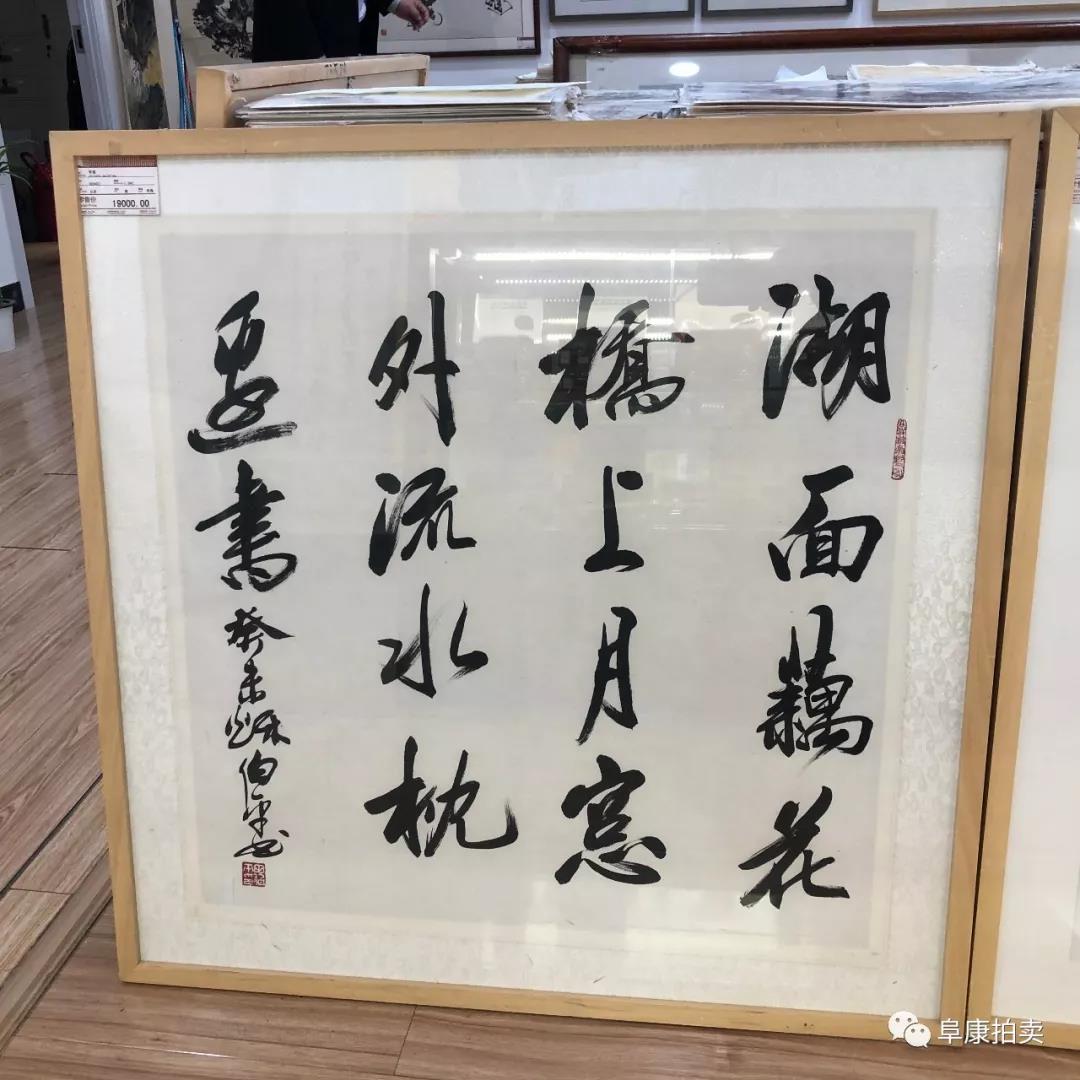 湖面藕花
橋上月窓
外流水枕
邊書
癸未秌伯平书
19000.00
阜康拍卖